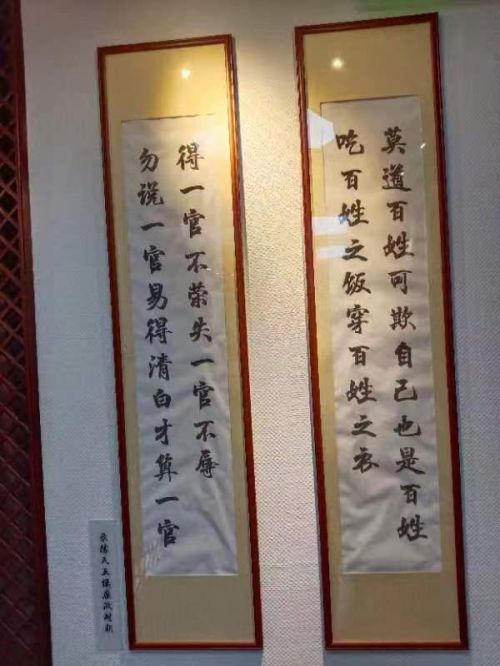 吃百姓之饭穿百姓之衣
莫道百姓可欺自己也是百姓
得一官不荣失一官不辱
勿说一官易得清白才算一官